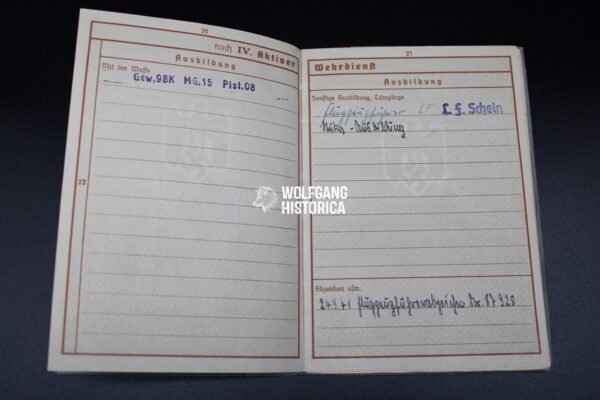 20
noch IV. Aktiver
Ausbildung
Mit der Waffe
Gew.98K MG.15 Pist.08
22
21
Wehrdienst
Ausbildung
Sonstige Ausbildung, Lehrgänge
Flugzeugführer LF L. F. Schein
-Ausbildung
Abzeichen usw.
24.9.41 Flugzeugführerabzeichen Nr. 87 928
WOLFGANG
HISTORICA